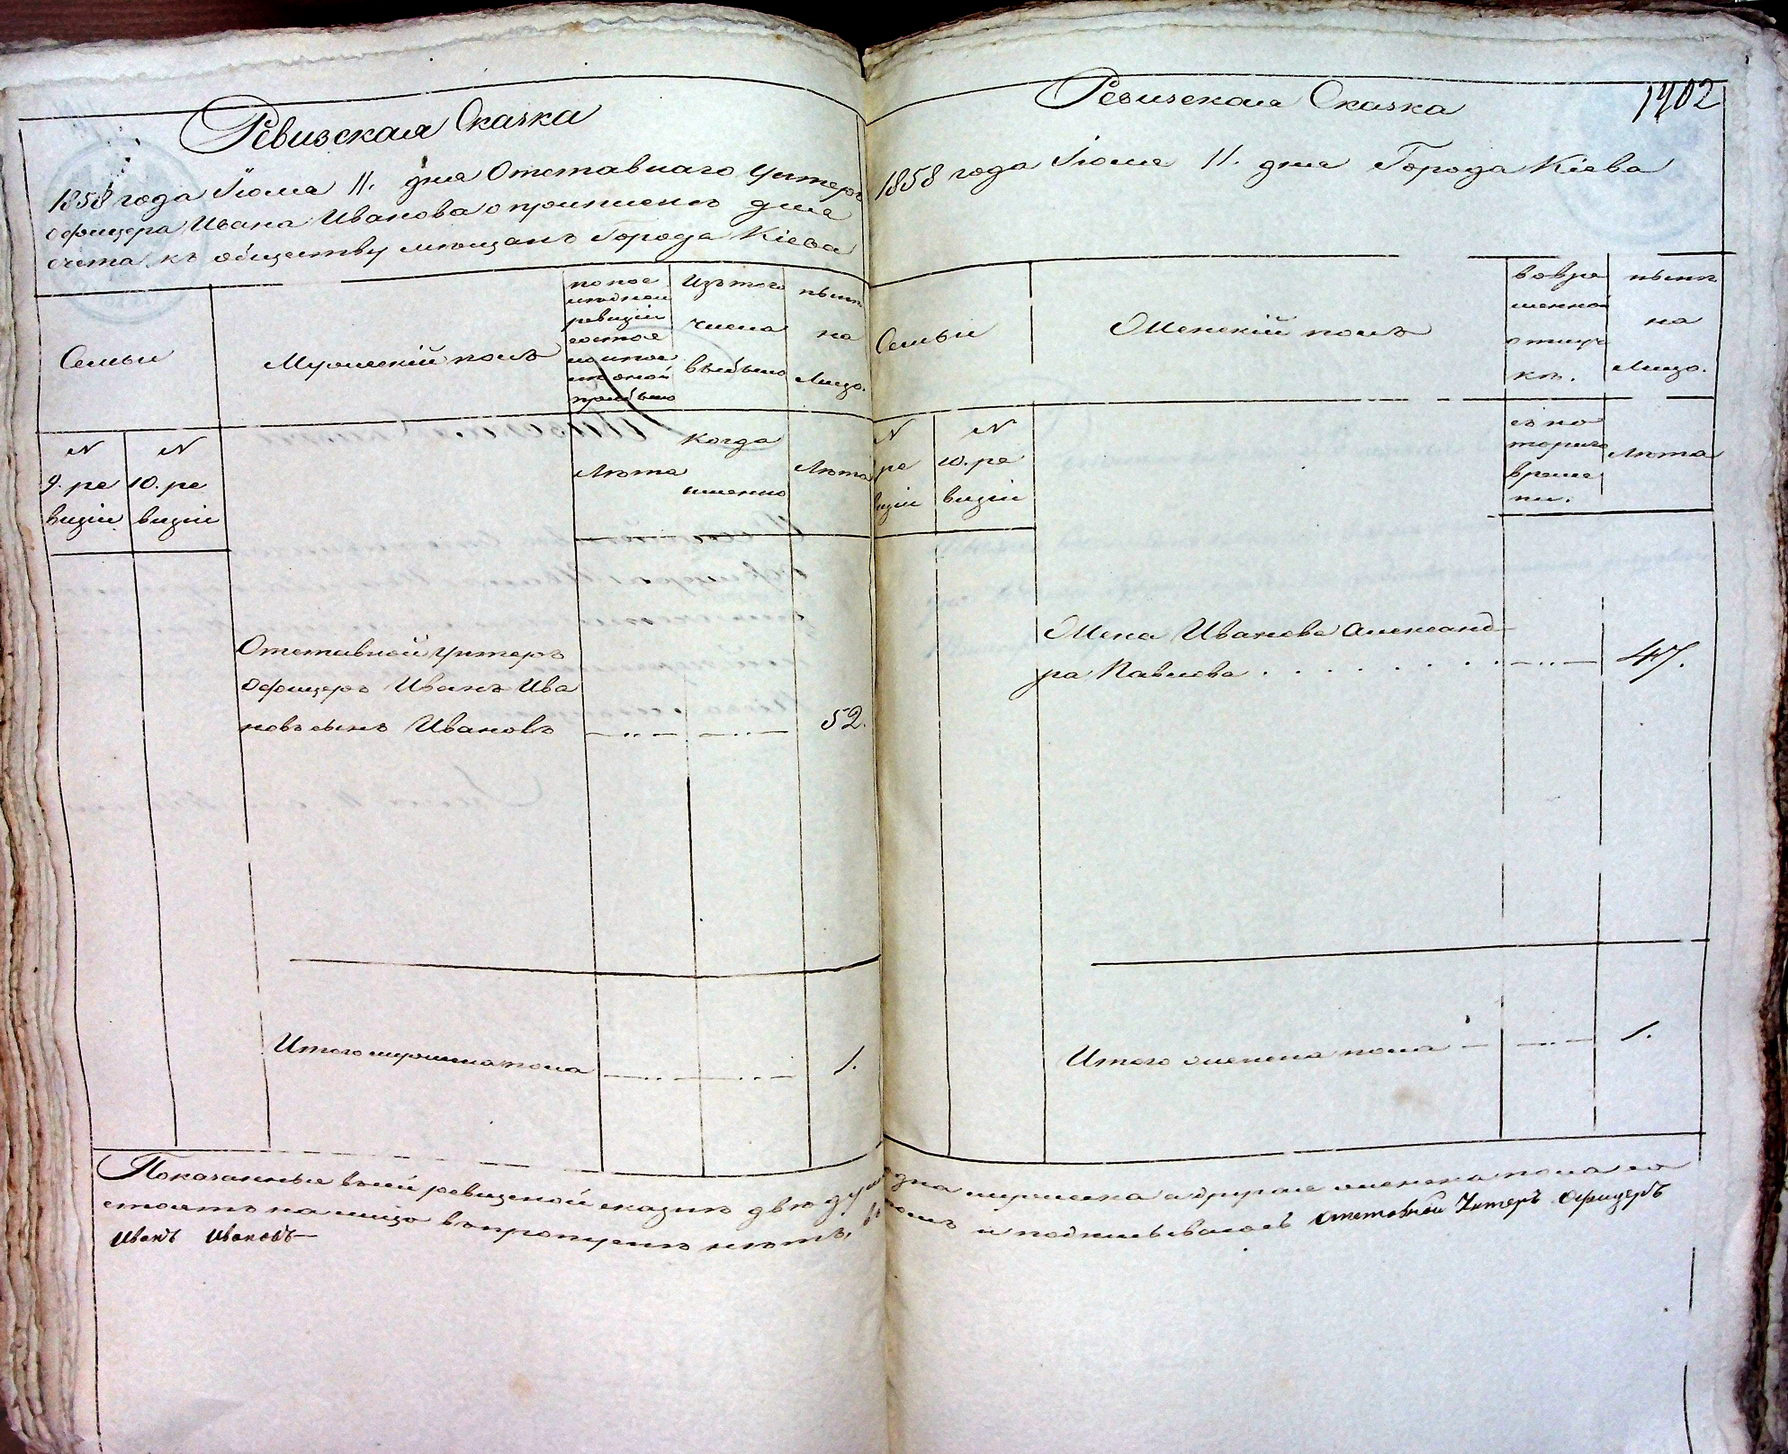 Ревизская Сказка
1858 года Июля 11. дня Отставнаго Унтеръ
офицера Ивана Иванова о приписке для
счета къ обществу мещанъ города Кіева
Семьи
Мужескій полъ
по пос
ледней
ревизіи
состоя
ло и пос
ле оной
прибыло
Изъ того
числа
выбыло
ныне
на
лицо.
N
9. ре
визіи
N
10. ре
визіи
Лета
когда
именно
Лета
Отставной Унтеръ
Офицеръ Иванъ Ива
новъ сынъ Ивановъ
52.
Итого мужеска пола
1.
Ревизская Сказка
1402
1858 года Июля 11. дня Города Кіева
Семьи
Женскій полъ
во вре
менной
отлуч
ке.
ныне
на
Лицо.
N
ре
визіи
N
10. ре
визіи
съ ко
тораго
време
ни.
Лета
Жена Иванова Александ
ра Павлова
47.
Итого женска пола
1.
Показанные въ сей ревизской сказке две души одна мужеска а другая женска пола со
стоятъ на лицо въ пропуске нетъ, въ томъ и подписываюсь Отставной Унтеръ Офицеръ
Иванъ Ивановъ